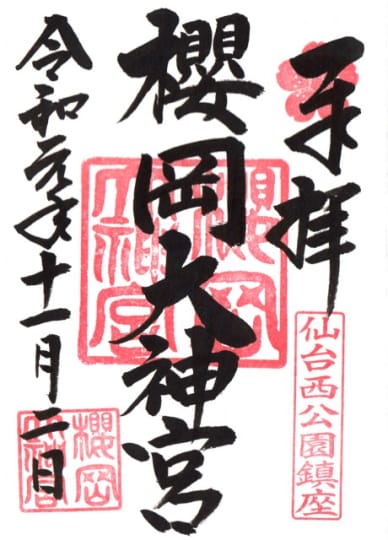 奉拝
仙台西公園鎮座
櫻岡大神宮
櫻岡大神宮
令和元年十一月二日
櫻岡大神宮